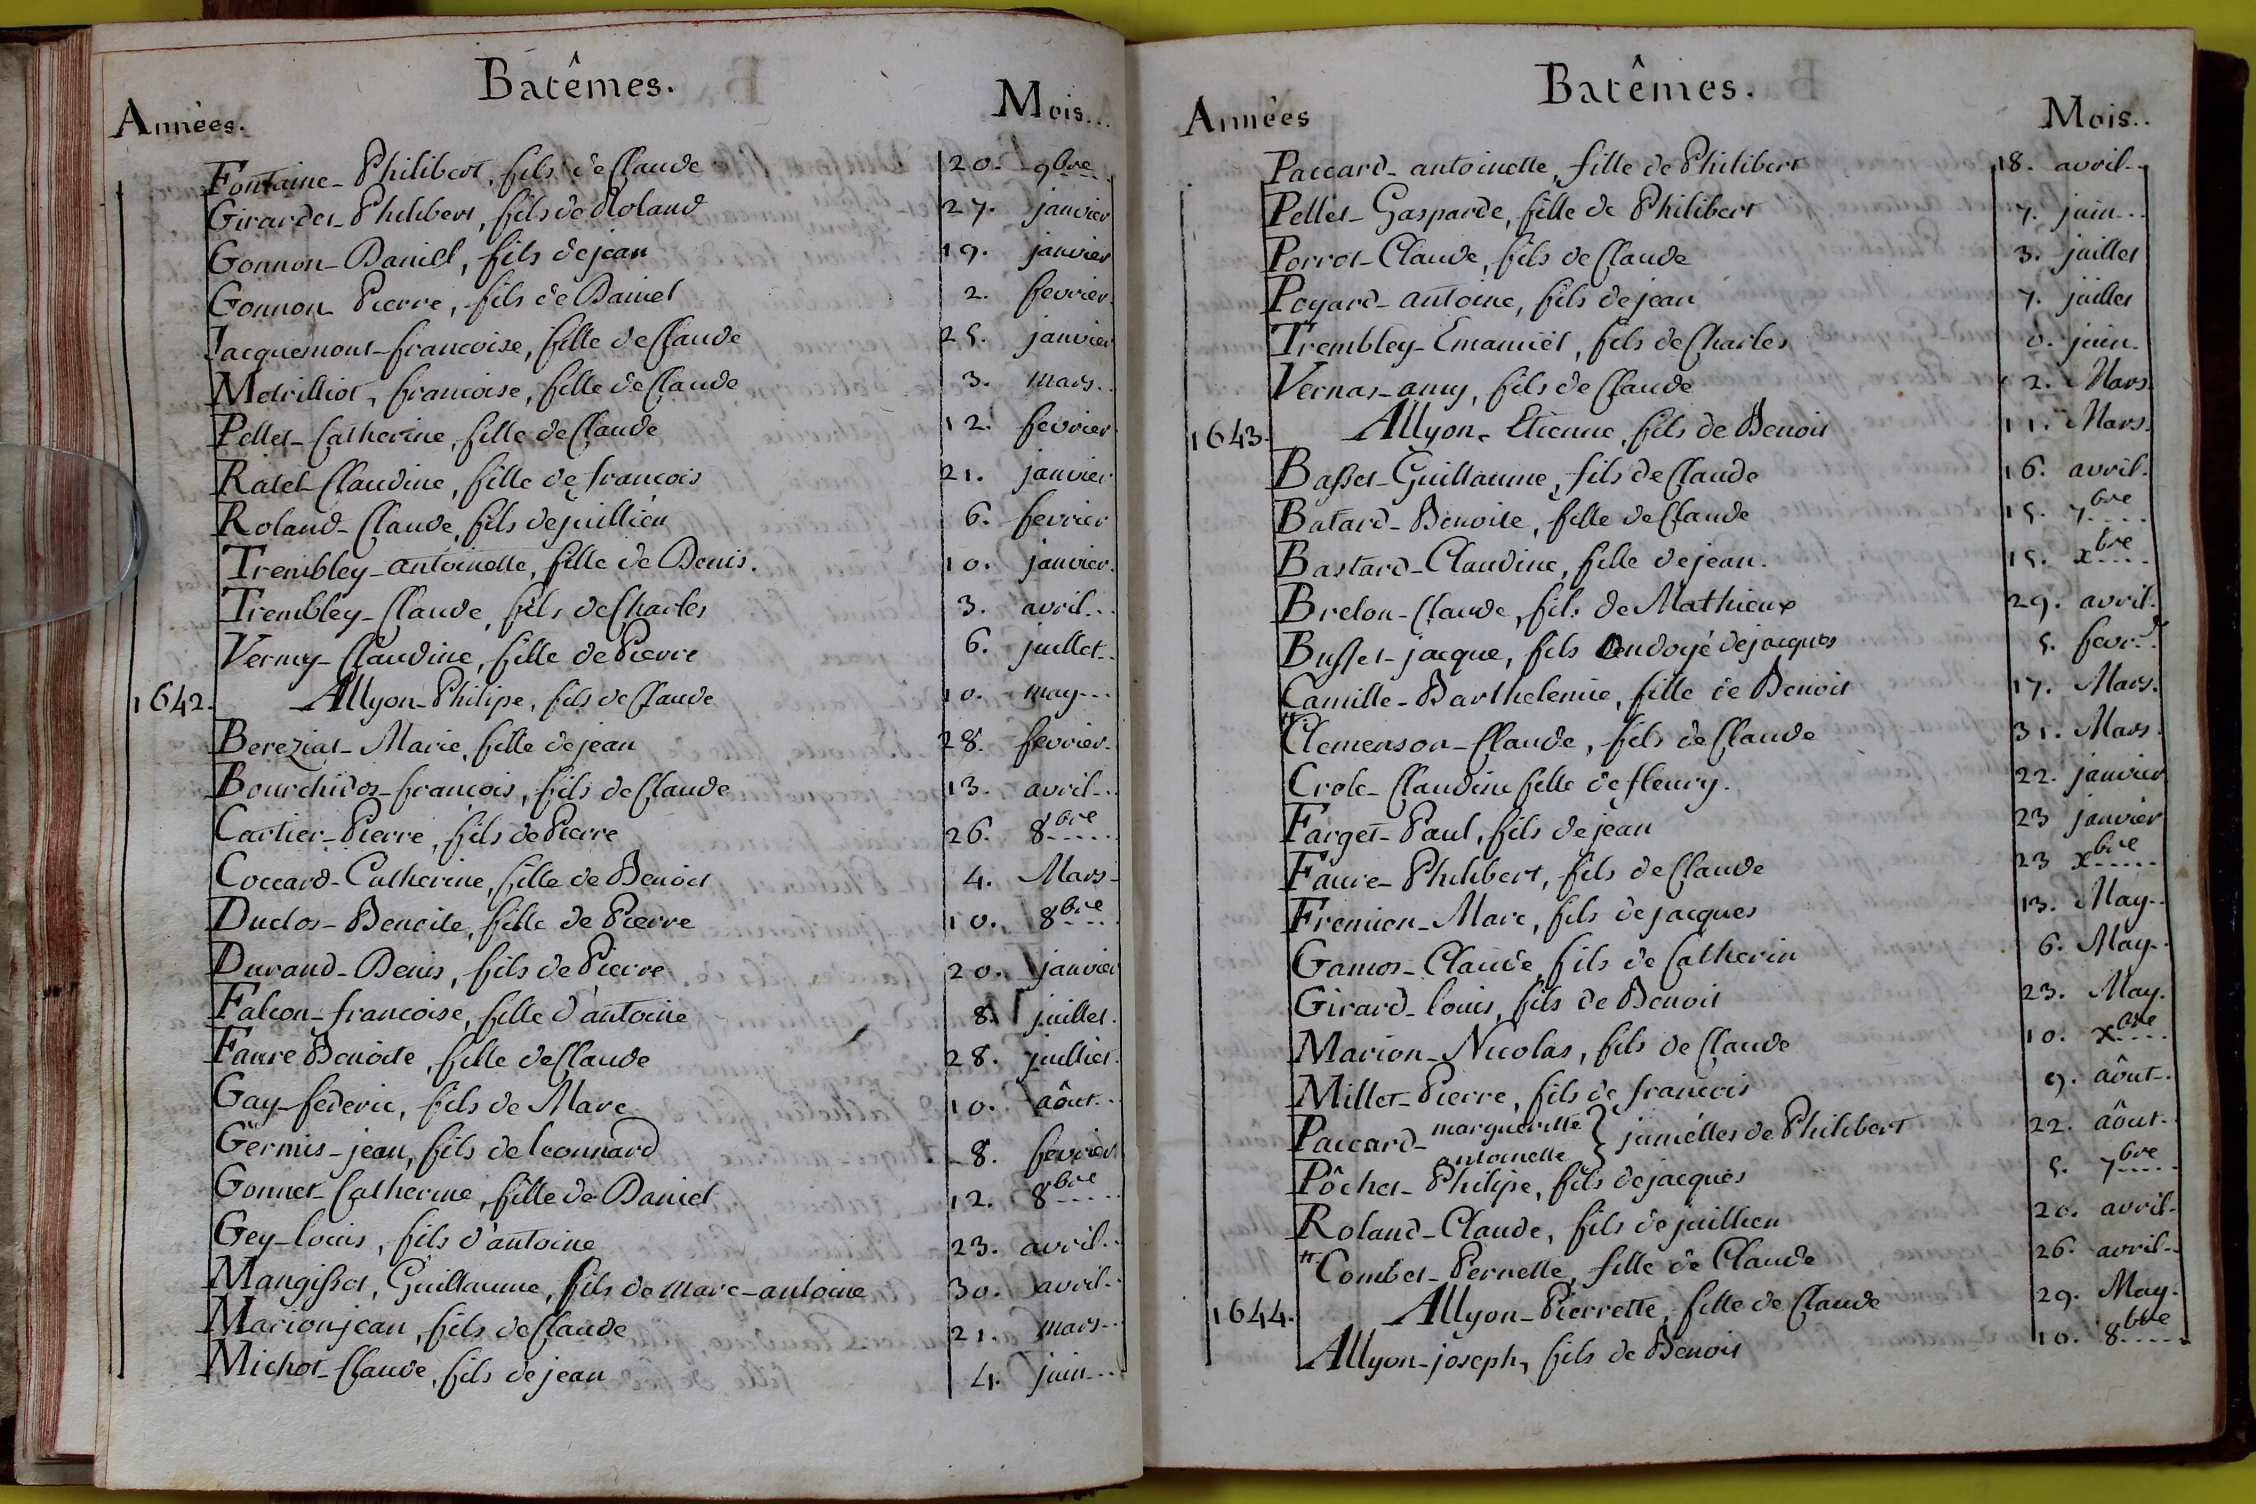 Batêmes.
Années. Mois...
Fontaine - Philibert, fils de Claude 20. 9bre
Girardet - Philibert, fils de Roland 27. janvier
Gonnon - Daniel, fils de jean 19. janvier
Gonnon Pierre, fils de Daniel 2. fevrier.
Jacquemont - francoise, fille de Claude 25. janvier
Motrilliot, francoise, fille de Claude 3. mars..
Pellet - Catherine, fille de Claude 12. fevrier.
Ratel - Claudine, fille de francois 21. janvier
Roland - Claude, fils de juillien 6. fevrier
Trembley - antoinette, fille de Denis. 10. janvier.
Trembley - Claude, fils de Charles 3. avril...
Vermy - Claudine, fille de Pierre 6. juillet..
1642. Allyon - Philipe, fils de Claude 10. may...
Bereziat - Marie, fille de jean 28. fevrier.
Bourchidos - francois, fils de Claude 13. avril...
Cartier - Pierre, fils de Pierre 26. 8bre
Coccard - Catherine, fille de Benoit 4. Mars -
Duclos - Benoite, fille de Pierre 10. 8bre
Durand - Denis, fils de Pierre 20. janvier
Falcon - francoise, fille d'antoine 8. juillet.
Faure Benoite, fille de Claude 28. juillet.
Gay - federic, fils de Marc 10. aôut...
Germis - jean, fils de leonnard 8. fevrier
Gonnet - Catherine, fille de Daniel 12. 8bre
Gey - louis, fils d'antoine 23. avril..
Mangissot, Guillaume, fils de marc - antoine 30. avril..
Marion jean, fils de Claude 21. mars..
Michot - Claude, fils de jean 4. juin...
Batêmes.
Années Mois..
Paccard - antoinette, fille de Philibert 18. avril..
Pellet - Gasparde, fille de Philibert 7. juin...
Porrot - Claude, fils de Claude 3. juillet
Poyard - antoine, fils de jean 7. juillet
Trembley - Emanuël, fils de Charles juin.
Vernas - amy, fils de Claude 2. Mars.
1643. Allyon - Etienne, fils de Benoit 11. Mars.
Basset - Guillaume, fils de Claude 16. avril.
Batard - Benoite, fille de Claude 15. 7bre
Bastard - Claudine, fille de jean. 15. xbre
Breton - Claude, fils de Mathieux 29. avril.
Busset - jacque, fils Ondoyé de jacques 5. fevr.
Camille - Barthelemie, fille de Benoit 17. Mars.
Clemenson - Claude, fils de Claude 31. Mars.
Crole - Claudine fille de fleury. 22. janvier
Farget - Paul, fils de jean 23 janvier
Faure - Philibert, fils de Claude 23 xbre
Fremion - Marc, fils de jacques 13. May..
Gamos - Claude, fils de Catherin 6. May..
Girard - louis, fils de Benoit 23. May.
Marion - Nicolas, fils de Claude 10. xbre
Millet - Pierre, fils de francois 9. aôut..
Paccard - margueritte antoinette } jumélles de Philibert 22. aôut..
Pôchet - Philipe, fils de jacques 5. 7bre
Roland - Claude, fils de juillien 20. avril.
Combet - Pernette, fille de Claude 26. avril..
1644. Allyon - Pierrette, fille de Claude 29. May.
Allyon - joseph, fils de Benoit 10. 8bre